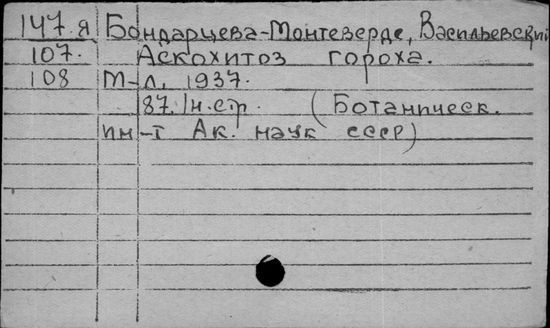 147.я Бондарцева-Монтеверде, Васильевский
107. Аскохитоз гороха.
108 М-Л, 1937.
87. 1н. стр. (Ботаническ.
ин-т Ак. наук СССР)